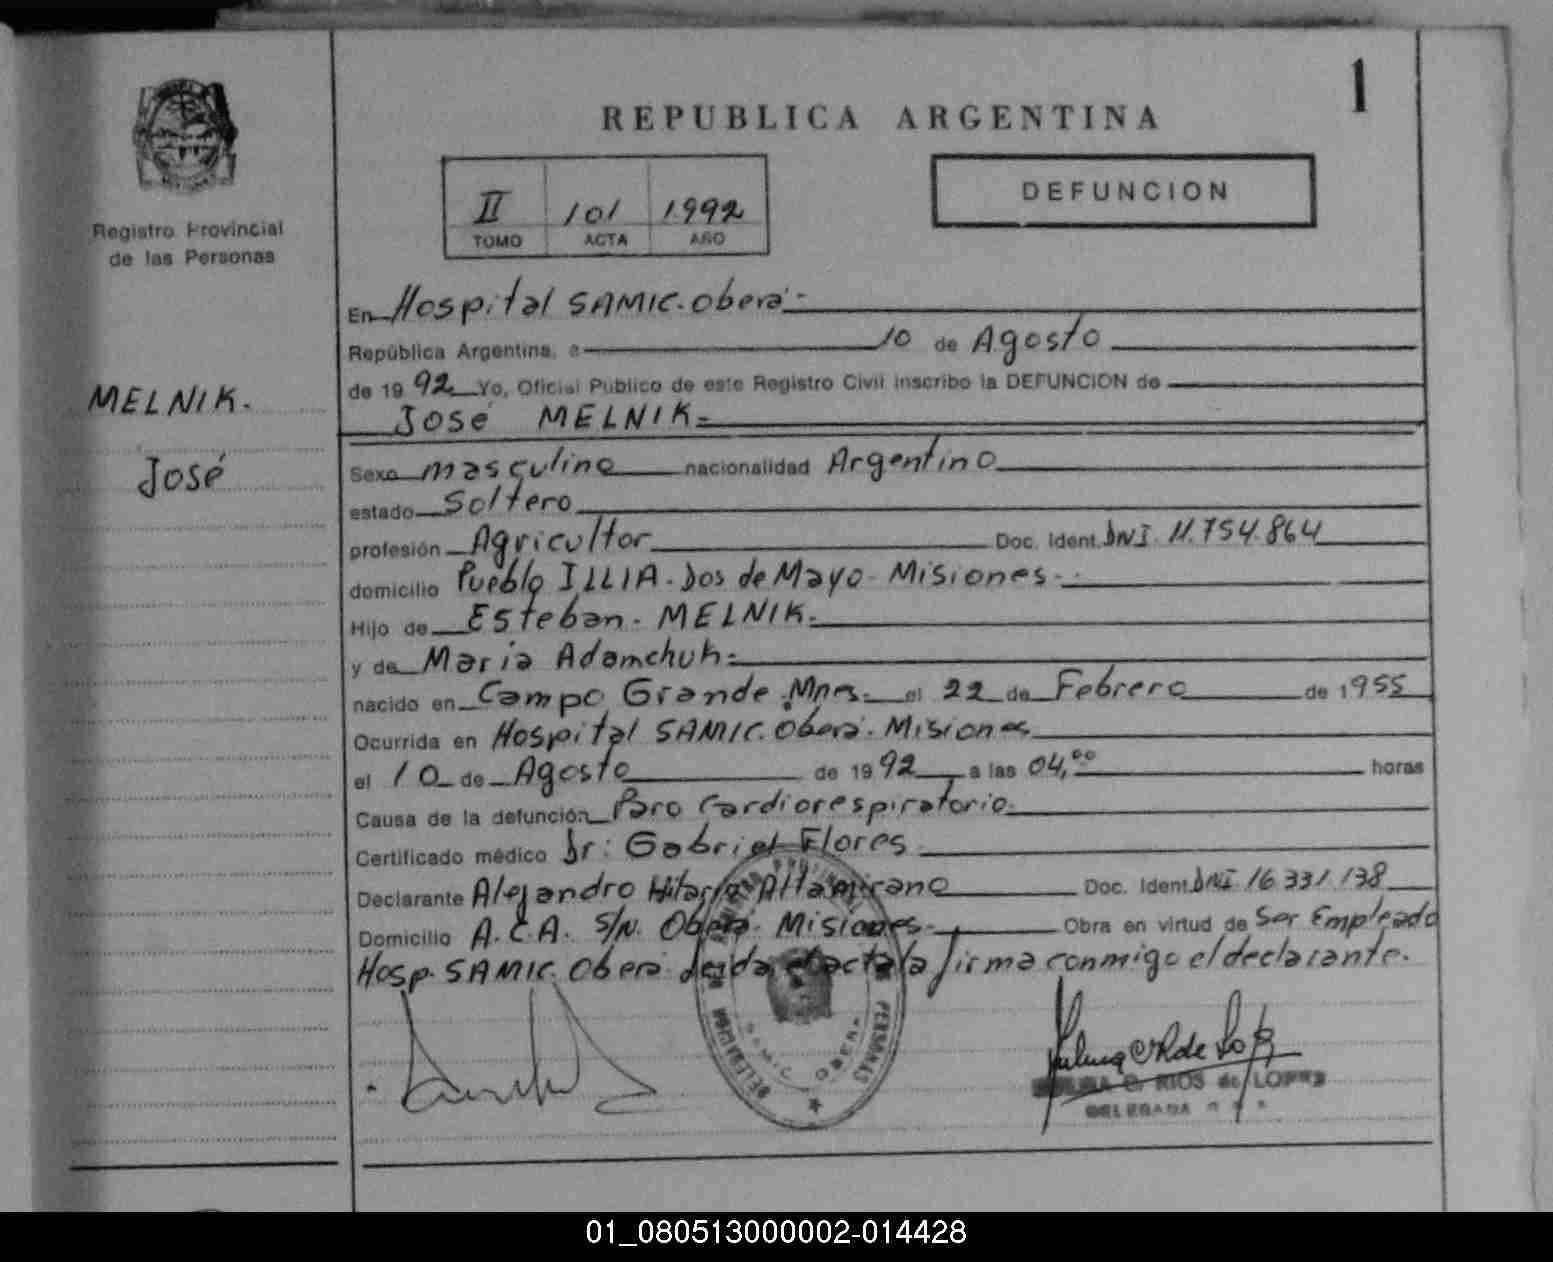 1
REPUBLICA ARGENTINA
II 101 1992
TOMO ACTA AÑO
DEFUNCION
Registro Provincial
de las Personas
MELNIK.
José
En Hospital SAMIC. Oberá.-
República Argentina, a 10 de Agosto
de 1992 Yo, Oficial Público de este Registro Civil inscribo la DEFUNCION de
José MELNIK.-
Sexo masculino nacionalidad Argentino
estado Soltero
profesión Agricultor Doc. Ident. DNI. 11.754.864
domicilio Pueblo ILLIA. Dos de Mayo- Misiones-.
Hijo de Esteban. MELNIK.
y de Maria Adamchuk.-
nacido en Campo Grande. Mnes.- el 22 de Febrero de 1955
Ocurrida en Hospital SAMIC. Oberá. Misiones
el 10 de Agosto de 1992 a las 04,00 horas
Causa de la defunción Paro Cardiorespiratorio.
Certificado médico Dr: Gabriel Flores
Declarante Alejandro Hilario Altamirano Doc. Ident. DNI. 16.331.138
Domicilio A.C.A. S/N. Oberá. Misiones.- Obra en virtud de Ser Empleado
Hosp. SAMIC. Oberá. Leida el acta la firma conmigo el declarante.
PERSONAS
SAMIC OBERA
DELEGACION
C. RIOS de LOPEZ
DELEGADA
01_080513000002-014428